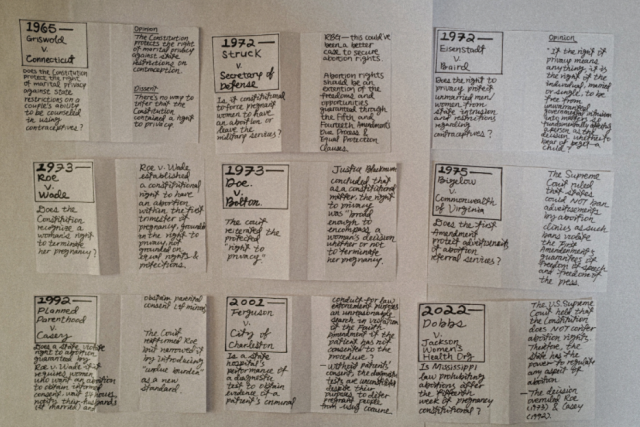 1965 —
Griswold
v.
Connecticut
Does the Constitution
protect the right
of marital privacy
against state
restrictions on a
couple's ability
to be counseled
in using
contraceptives?
Opinion
The Constitution
protects the right
of marital privacy
against state
restrictions on
contraception.
Dissent
There's no way to
infer that the
Constitution
contained a right
to privacy.
1972 —
Struck
v.
Secretary of
Defense
Is it constitutional
to force pregnant
women to have
an abortion or
leave the
military services?
RBG — this could've
been a better
case to secure
abortion rights
Abortion rights
should be an
extension of the
freedoms and
opportunities
guaranteed through
the Fifth and
Fourteenth Amendments
Due Process &
Equal Protection
Clauses.
1972 —
Eisenstadt
v.
Baird
Does the right to
privacy protect
unmarried men/
women from
state intrusion
and restrictions
regarding
contraceptives?
Opinion
"If the right of
privacy means
anything, it is
the right of the
individual, married
or single, to be
free from
unwarranted
governmental intrusion
into matters so
fundamentally affecting
a person as the
decision whether to
bear or beget a
child."
1973 —
Roe
v.
Wade
Does the
Constitution
recognize a
woman's right
to terminate
her pregnancy?
Roe v. Wade
established a
constitutional
right to have
an abortion
within the first
trimester of
pregnancy, grounded
in the right to
privacy, not
grounded on
equal rights &
protections.
1973 —
Doe
v.
Bolton
The court
reiterated the
protected
"right to
privacy"
Justice Blackmun
concluded that
as a constitutional
matter, the right
to privacy
was "broad
enough to
encompass a
woman's decision
whether or not
to terminate
her pregnancy.
1975 —
Bigelow
v.
Commonwealth
of Virginia
Does the First
Amendment
protect advertisements
of abortion
referral services?
The Supreme
Court ruled
that states
could NOT ban
advertisements
by abortion
clinics as such
bans violate
the First
Amendment's
guarantees of
freedom of speech
and freedom of
the press.
1992 —
Planned
Parenthood
v.
Casey
Does a state violate
right to abortion
guaranteed by
Roe v. Wade if it
requires women
who want an abortion
to obtain informed
consent, wait 24 hours,
notify their husbands
(if married) and
obtain parental
consent (if minors)
The Court
reaffirmed Roe
but narrowed it
by introducing
"undue burden"
as a new
standard.
2001 —
Ferguson
v.
City of
Charleston
Is a state
hospital's
performance of
a diagnostic
test to obtain
evidence of a
patient's criminal
conduct for law
enforcement purposes
an unreasonable
search in violation
of the Fourth
Amendment if the
patient has not
consented to the
procedure?
Without patients'
consent, the diagnostic
tests are unconstitutional
despite their
purpose to deter
pregnant people
from using cocaine
2022 —
Dobbs
v.
Jackson
Women's
Health Org
Is Mississippi
law prohibiting
abortions after
the fifteenth
week of pregnancy
constitutional?
The U.S. Supreme
Court held that
the Constitution
does NOT confer
abortion rights.
Therefore, the
state has the
power to regulate
any aspect of
abortion
— The decision
overruled Roe
(1973) & Casey
(1992).